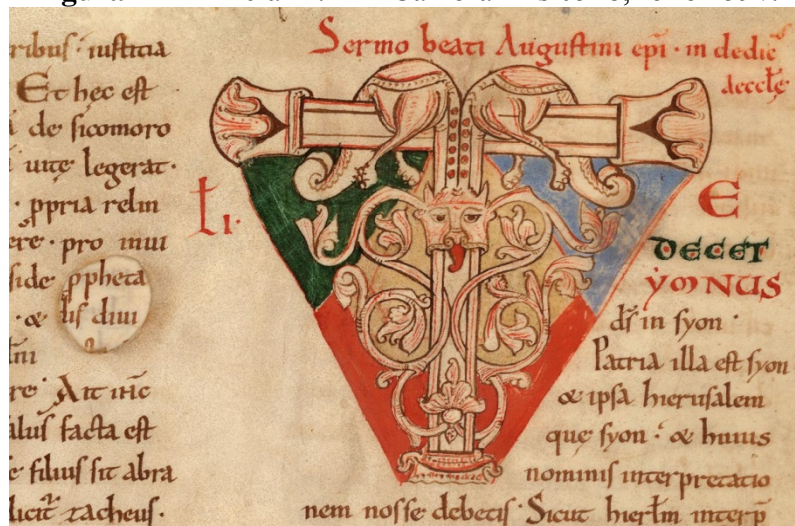 ribus· iusticia
Et hec est
de sicomoro
uite legerat·
· ppria relin
pro
side ppheta
· &
re· Ait
alus facta est
filius sit abra
zacheus·
Sermo beati Augustini epi· in dedic
Li·
T E
DECET
YMNUS
ds in syon·
Patria illa est syon
& ipsa hierusalem
que syon· & huius
nominis interpretatio
nem nosse debetis· Sicut hierlm interp